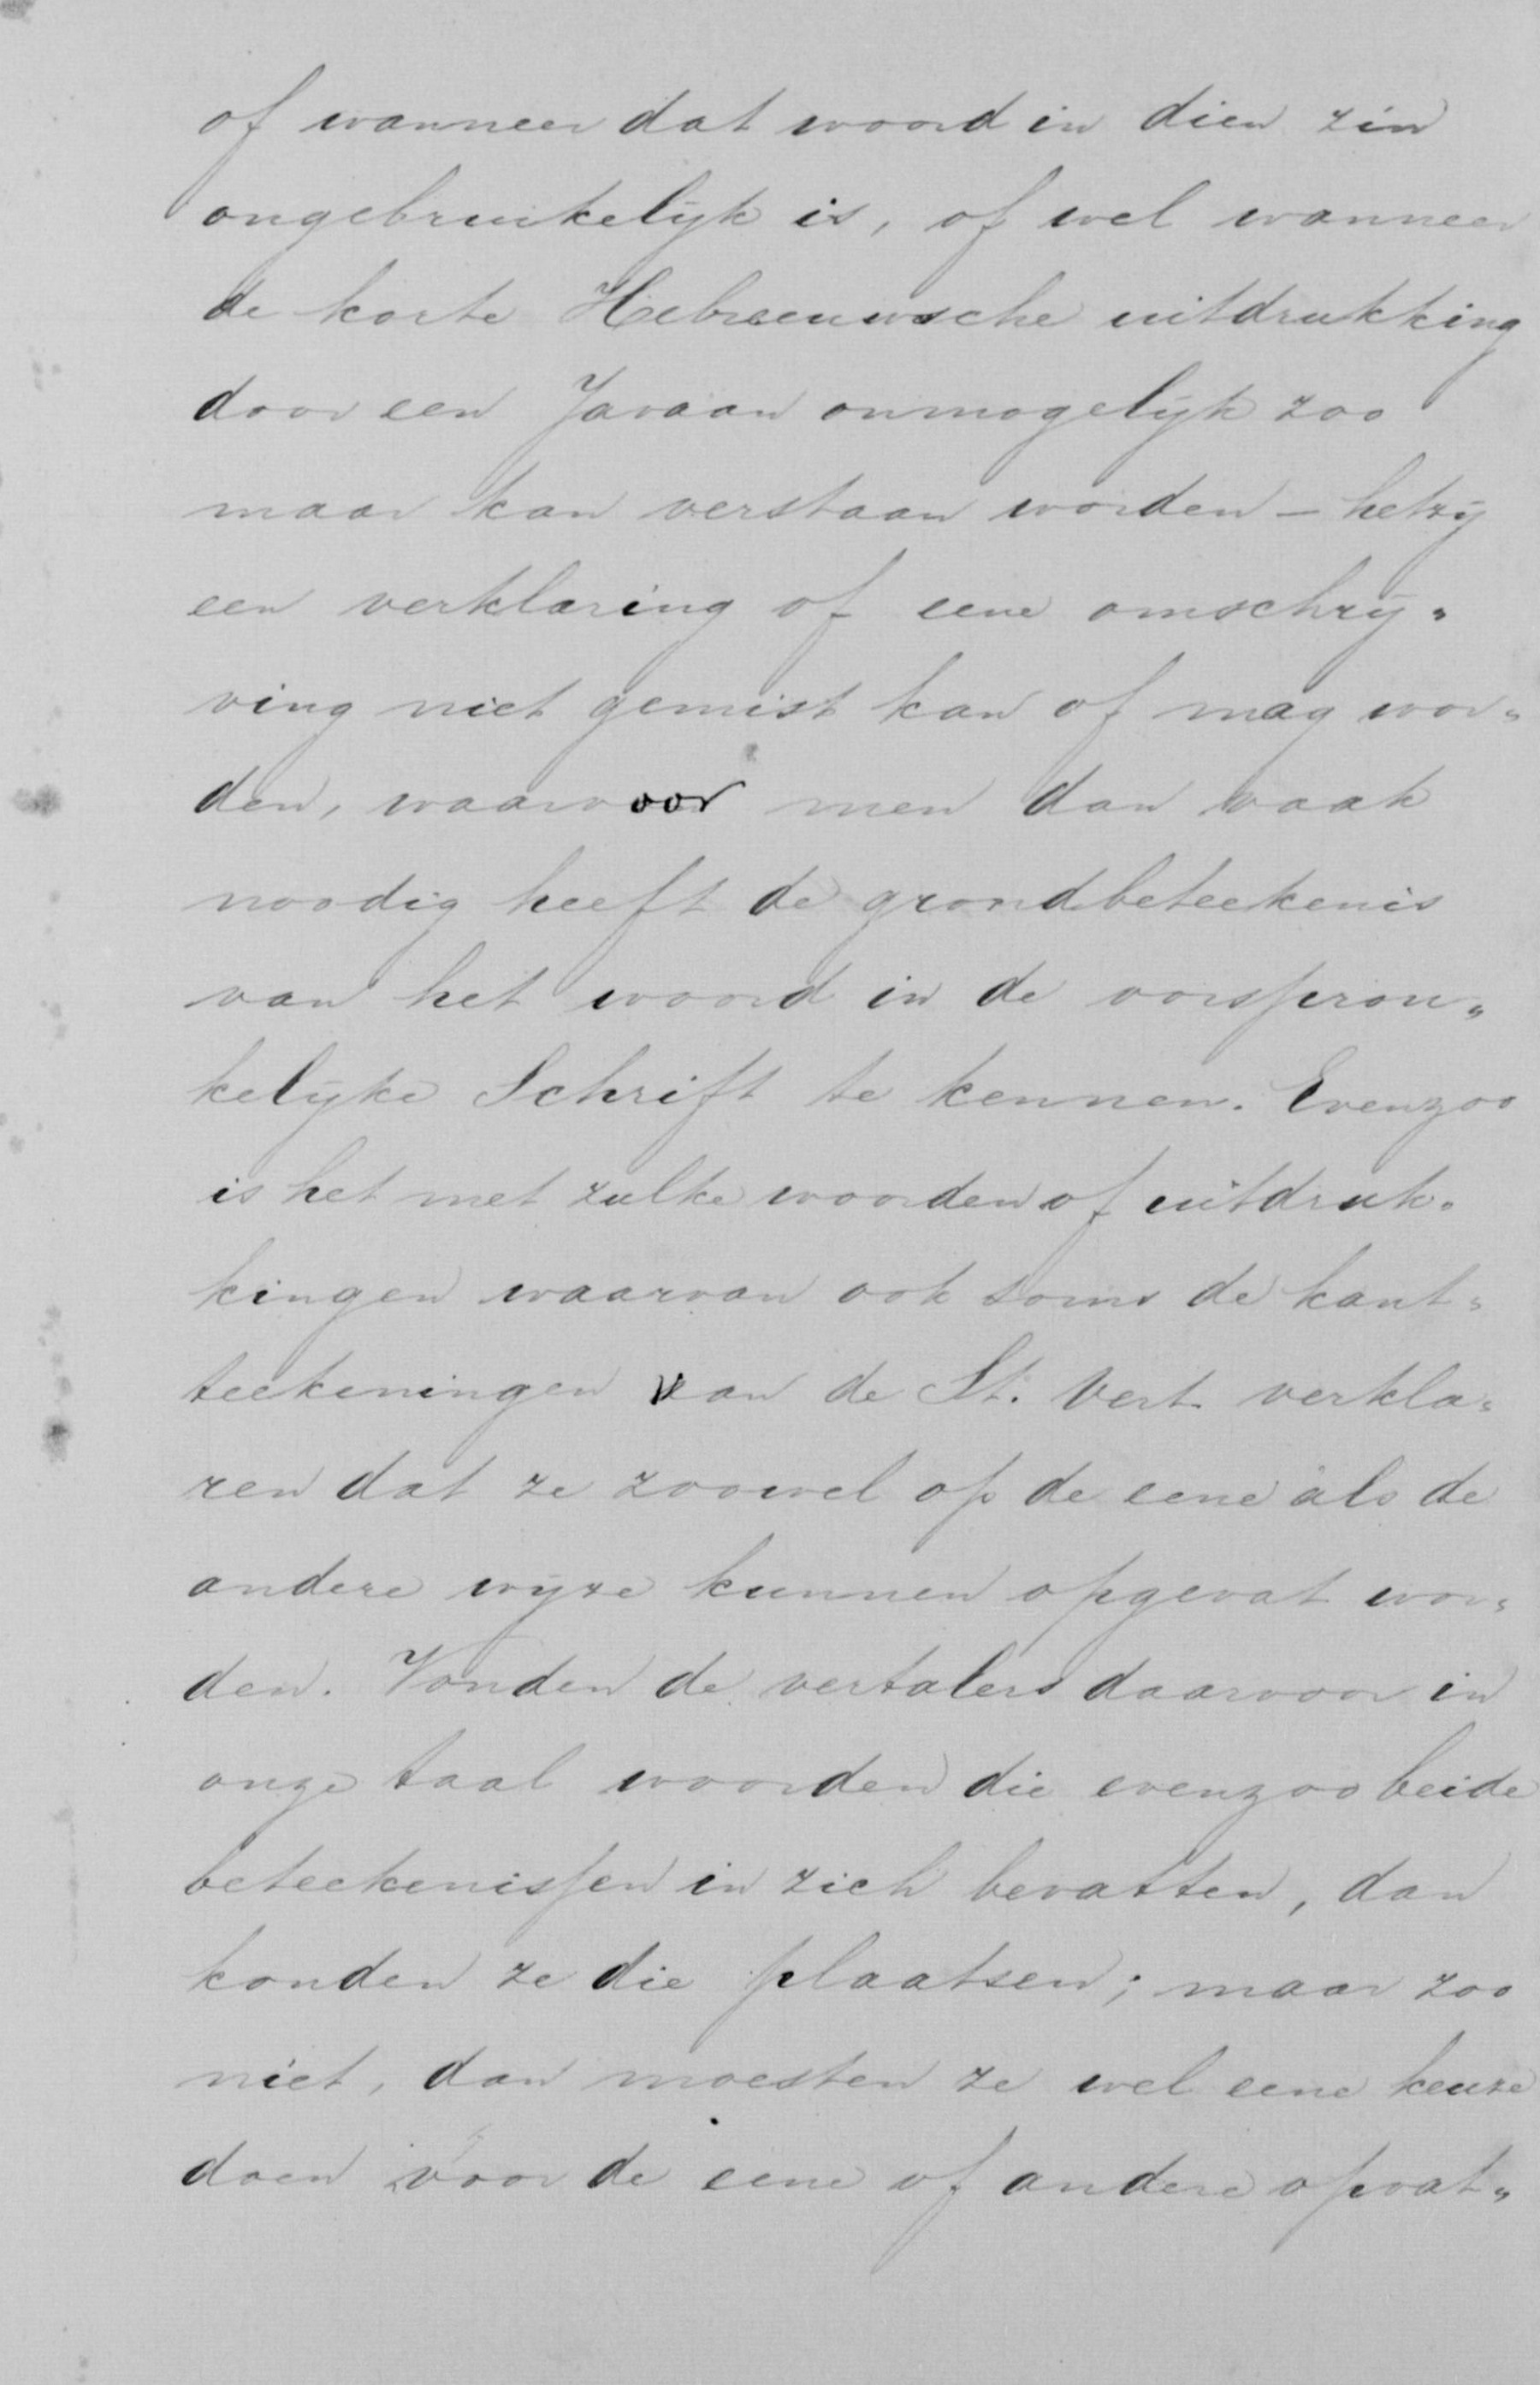 of wanneer dat woord in dien zin
ongebruikelijk is, of wel wanneer
de korte Hebreeuwsche uitdrukking
door een Javaan onmogelijk zoo
maar kan verstaan worden – hetzij
een verklaring of eene omschrij„
ving niet gemist kan of mag wor„
den, waarvoor men dan vaak
noodig heeft de grondbeteekenis
van het woord in de oorspron„
kelijke Schrift te kennen. Evenzoo
is het met zulke woorden of uitdruk„
kingen waarvan ook soms de kant„
teekeningen van de St. Vert. verkla„
ren dat ze zoowel op de eene als de
andere wijze kunnen opgevat wor„
den. Vonden de vertalers daarvoor in
onze taal woorden die evenzoo beide
beteekenissen in zich bevatten, dan
konden ze die plaatsen; maar zoo
niet, dan moesten ze wel eene keuze
doen voor de eene of andere opvat„